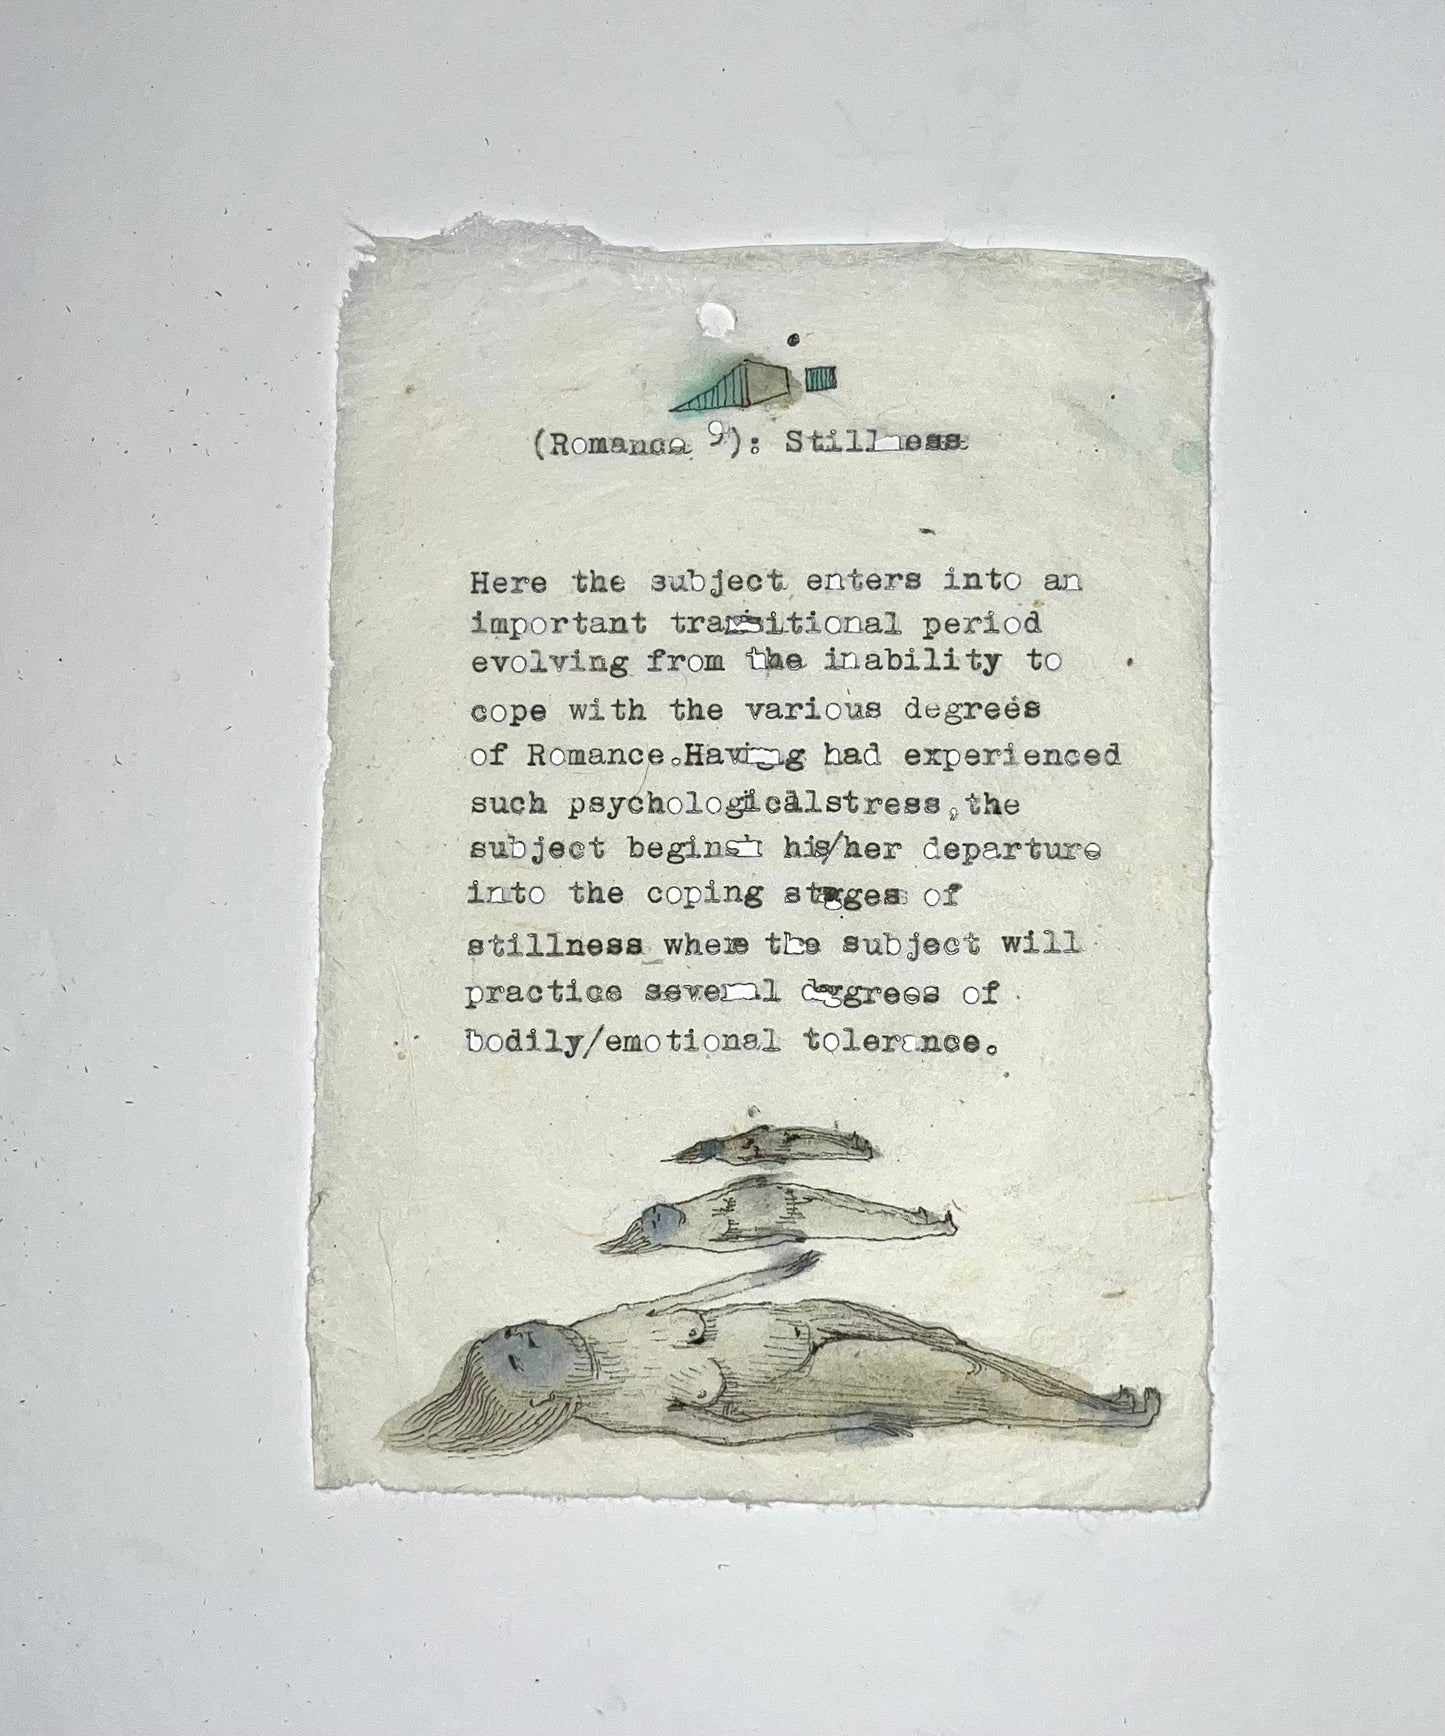 (Romance 9): Stillness
Here the subject enters into an
important transitional period
evolving from the inability to
cope with the various degrees
of Romance.Having had experienced
such psychologicalstress,the
subject begins his/her departure
into the coping stages of
stillness where the subject will
practice several degrees of
bodily/emotional tolerance.